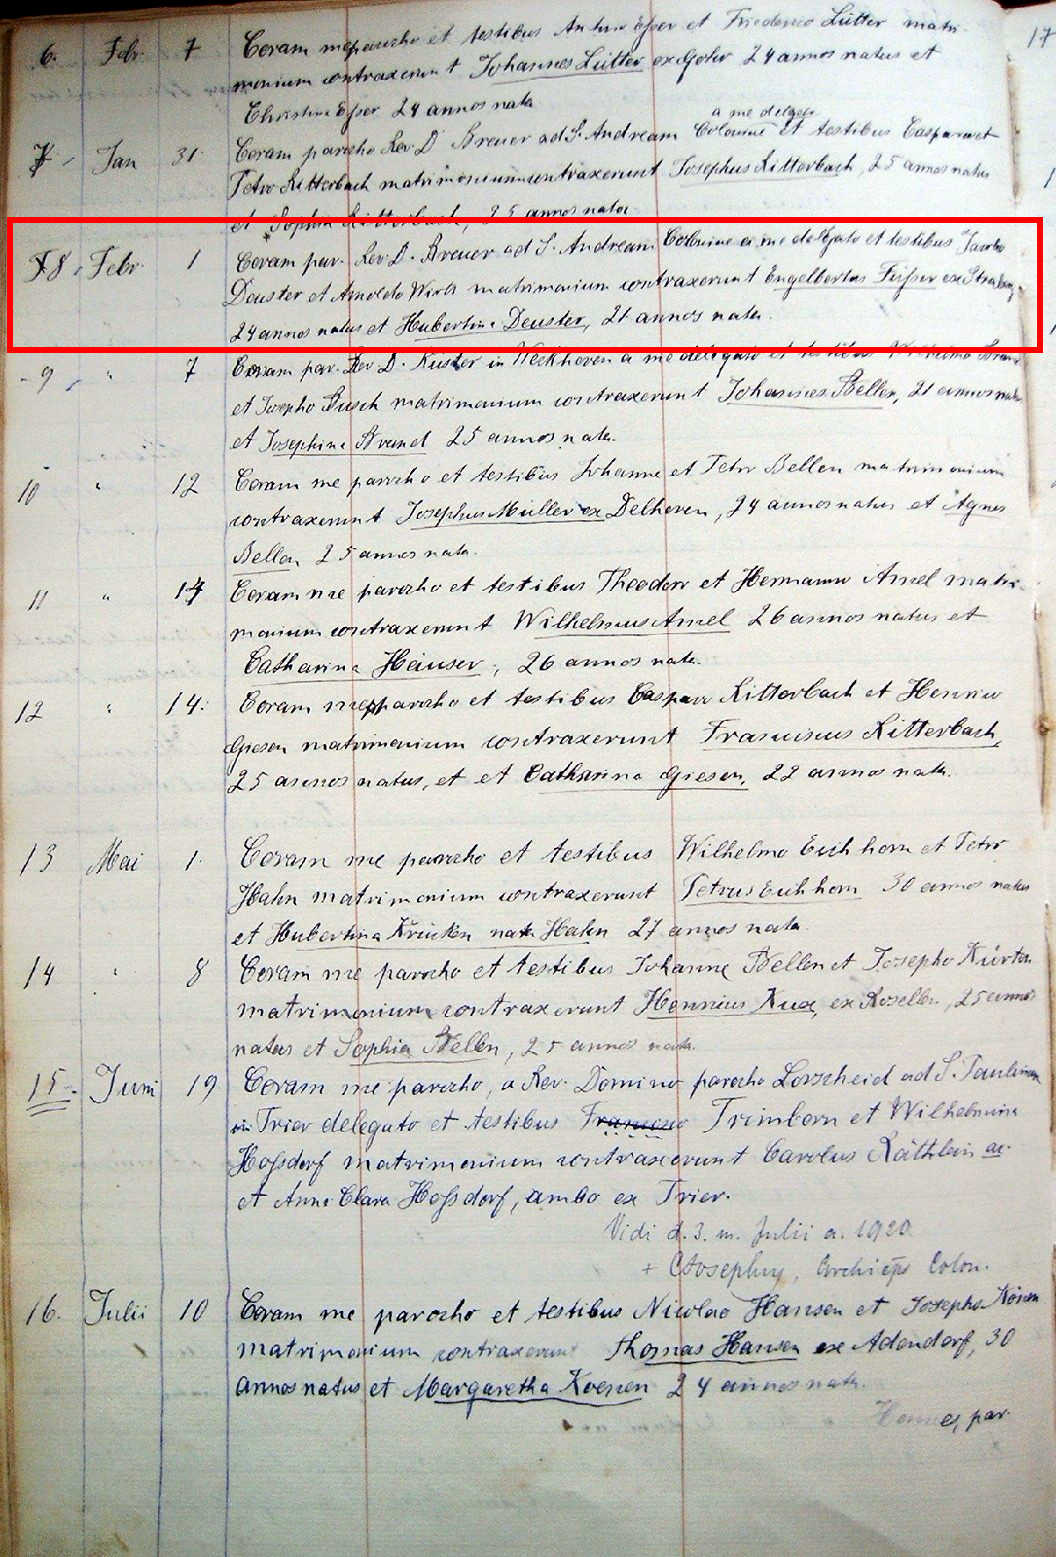 17
6. Febr. 7 Coram me parocho et testibus Antonio Esser et Friederico Lütter matri-
monium contraxerunt Johannes Lütter ex Gohr 24 annos natus et
Christina Esser 24 annos nata
a me delegato
7 Jan 31. Coram parocho Rev. D. Breuer ad S. Andream Coloniae et testibus Casparo et
Petro Ritterbach matrimonium contraxerunt Josephus Ritterbach, 25 annos natus
et Sophia Ritterbach, 25 annos nata
8 Febr. 1 Coram par. Rev. D. Breuer ad S. Andream Coloniae a me delegato et testibus Jacobo
Deuster et Arnoldo Wirtz matrimonium contraxerunt Engelbertus ex
24 annos natus et Hubertina Deuster, 21 annos nata.
9 " 7 Coram par. Rev D. Kuster in Weckhoven a me delegato et testibus Wilhelmo
et Josepho Busch matrimonium contraxerunt Johannes Bellen, 21 annos natus
et Josephina Brand 25 annos nata.
10 " 12 Coram me parocho et testibus Johanne et Petro Bellen matrimonium
contraxerunt Josephus Müller ex Delhoven, 24 annos natus et Agnes
Bellen 25 annos nata.
11 " 14 Coram me parocho et testibus Theodoro et Hermanno Amel matri-
monium contraxerunt Wilhelmus Amel 26 annos natus et
Catharina Häuser, 26 annos nata.
12 " 14. Coram me parocho et testibus Casparo Ritterbach et Henrico
Giesen matrimonium contraxerunt Franciscus Ritterbach,
25 annos natus, et et Catharina Giesen, 22 annos nata.
13 Mai 1. Coram me parocho et testibus Wilhelmo Eichhorn et Petro
Hahn matrimonium contraxerunt Petrus Eichhorn 30 annos natus
et Hubertina Krücken nata Hahn 27 annos nata
14 " 8 Coram me parocho et testibus Johanne Bellen et Josepho Kürten
matrimonium contraxerunt Henricus Kux, ex Rosellen, 25 annos
natus et Sophia Bellen, 25 annos nata.
15. Juni 19 Coram me parocho, a Rev. Domino parocho Lorscheid ad S. Paulinum
in Trier delegato et testibus Francisco Trimborn et Wilhelmina
Hossdorf matrimonium contraxerunt Carolus Räthlein ac
et Anna Clara Hossdorf, ambo ex Trier.
Vidi d. 3. m. Julii a. 1920.
+ C Josephus, Archieps Colon.
16. Julii 10 Coram me parocho et testibus Nicolao Hansen et Josepho Könen
matrimonium contraxerunt Thomas Hansen ex Adendorf, 30
annos natus et Margaretha Koenen 24 annos nata.
par.